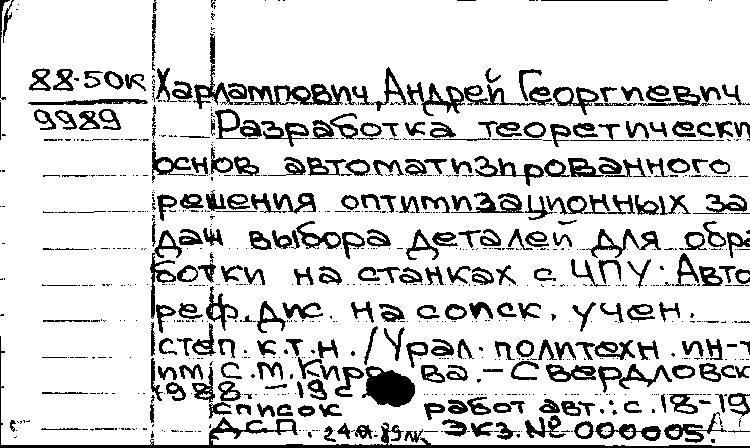 88-50к Харлампович, Андрей Георгиевич
9989 Разработка теоретически
основ автоматизированного
решения оптимизационных за
дач выбора деталей для обра
ботки на станках с ЧПУ: Авто
реф. дис. на соиск. учен.
степ. к.т.н. / Урал. политехн. ин-т
им. С.М. Кирова. – Свердловск
1988. – 19 с.
Список работ авт.: с. 18-19
Д.С.П. Экз. № 000005.